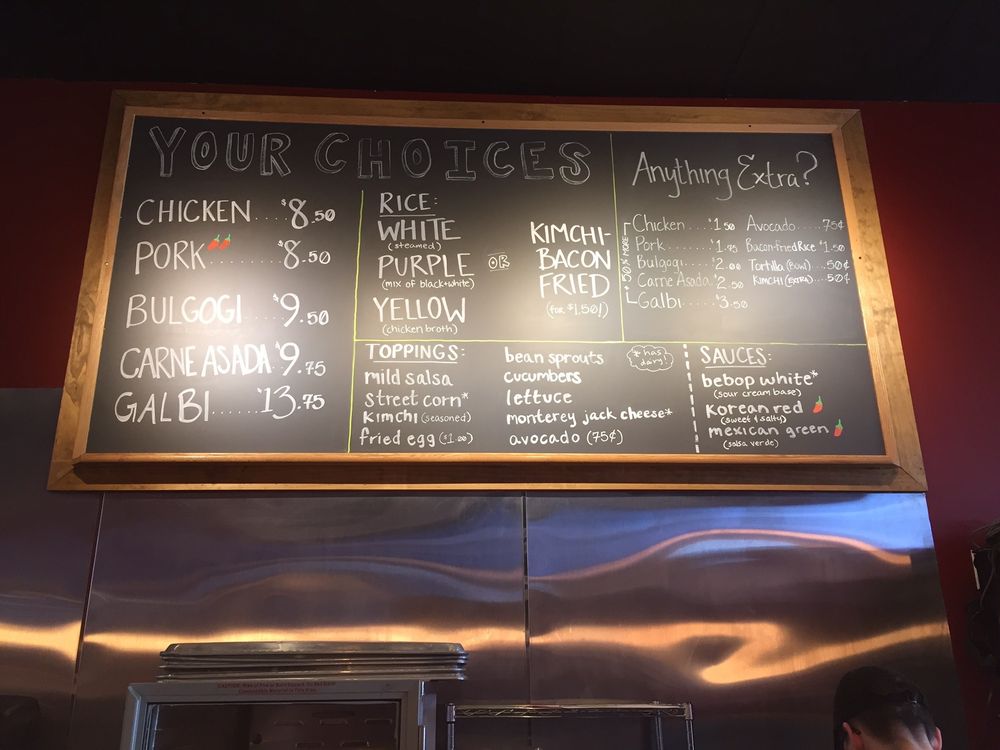 YOUR CHOICES
CHICKEN....$8.50
PORK.......$8.50
BULGOGI....$9.50
CARNE ASADA $9.75
GALBI......$13.75
RICE:
WHITE
(steamed)
PURPLE
(mix of black+white)
YELLOW
(chicken broth)
OR
KIMCHI-
BACON
FRIED
(for $1.50!)
Anything Extra?
+50% MORE
Chicken....$1.50
Pork.......$1.75
Bulgogi....$2.00
Carne Asada $2.50
Galbi......$3.50
Avocado....75¢
Bacon-fried Rice $1.50
Tortilla (Bowl)...50¢
KIMCHI (EXTRA)...50¢
TOPPINGS:
mild salsa
street corn*
kimchi (seasoned)
fried egg ($1.00)
bean sprouts
cucumbers
lettuce
monterey jack cheese*
avocado (75¢)
*has
dairy!
SAUCES:
bebop white*
(sour cream base)
Korean red
(sweet & salty)
mexican green
(salsa verde)